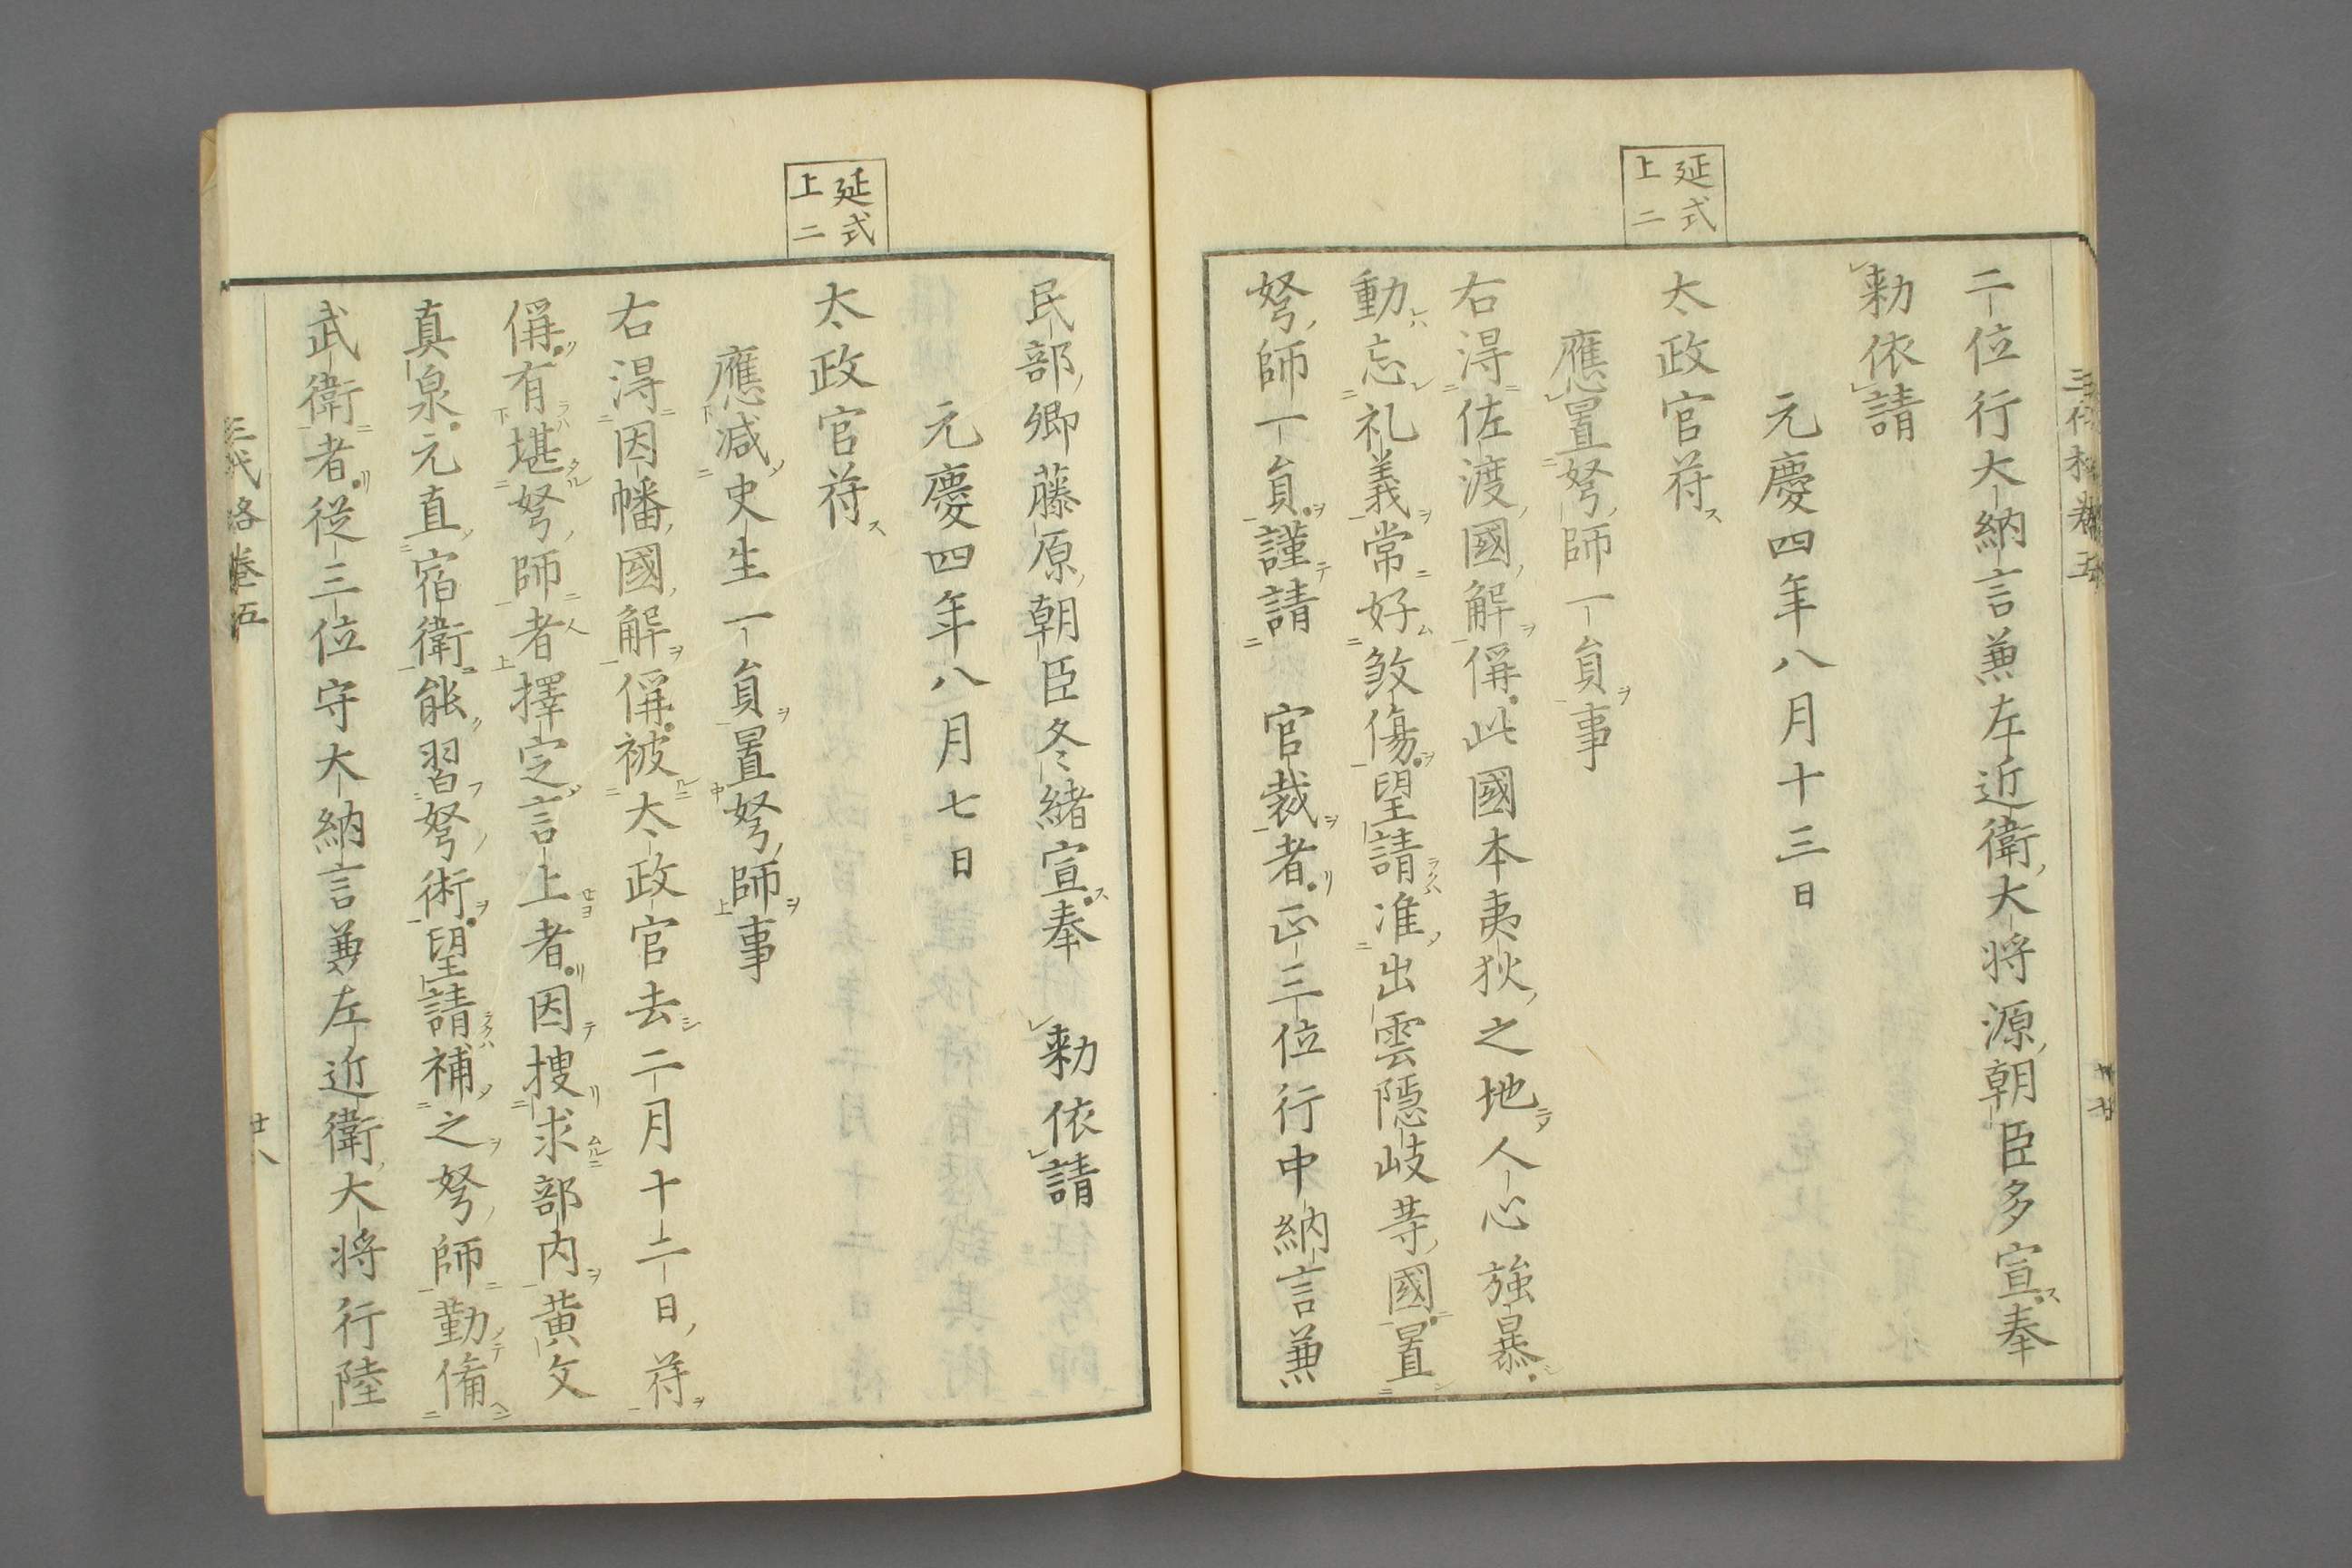 延式
上二
二位行大納言兼左近衛大将源朝臣多宣奉
勅依請
元慶四年八月十三日
太政官符
應置弩師一員事
右得佐渡國解偁此國本夷狄之地人心強暴
動忘礼義常好煞傷望請准出雲隠岐等國置
弩師一員謹請官裁者正三位行中納言兼
延式
上二
民部卿藤原朝臣冬緒宣奉勅依請
元慶四年八月七日
太政官符
應减史生一員置弩師事
右得因幡國解偁被太政官去二月十二日符
偁有堪弩師者擇定言上者因搜求部内黄文
真泉元直宿衛能習弩術望請補之弩師勤備
武衛者從三位守大納言兼左近衛大将行陸
三代格巻五
廿八